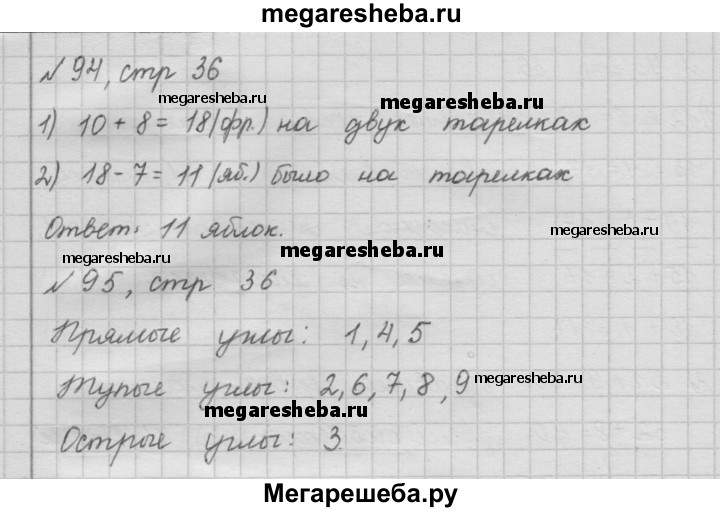 megaresheba.ru
№ 94, стр 36
megaresheba.ru
megaresheba.ru
1) 10 + 8 = 18 (фр.) на двух тарелках
2) 18 - 7 = 11 (яб.) было на тарелках
Ответ: 11 яблок.
megaresheba.ru
megaresheba.ru
№ 95, стр 36
Прямые углы: 1, 4, 5
megaresheba.ru
Тупые углы: 2, 6, 7, 8, 9
megaresheba.ru
Острые углы: 3
Мегарешеба.ру